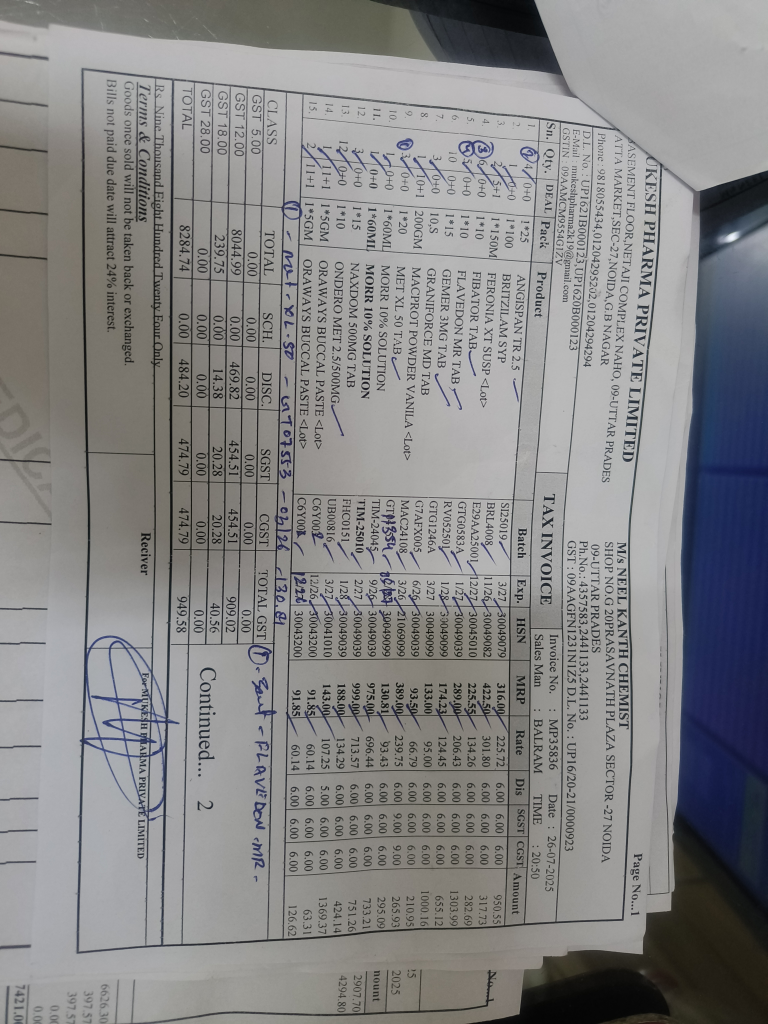 Page No...1
UKESH PHARMA PRIVATE LIMITED
ASEMENT FLOOR,NETAJI COMPLEX NAHO, 09-UTTAR PRADES
ATTA MARKET,SEC-27,NOIDA,G.B NAGAR
Phone : 9818055434,01204295202,01204294294
D.L. No. : UP1621B000123,UP1620B000123
E-Mail : mukeshpharma2k19@gmail.com
GSTIN : 09AAMCM9554G1ZV
M/s NEEL KANTH CHEMIST
SHOP NO.G 20PRASAVNATH PLAZA SECTOR -27 NOIDA
09-UTTAR PRADES
Ph.No.: 4357583,2441133,2441133
GST : 09AAGFN1231N1Z5 D.L. No. : UP16/20-21/0000923
TAX INVOICE
Invoice No. : MP35836 Date : 26-07-2025
Sales Man : BALRAM TIME : 20:50
Sn. Qty. DEAL Pack Product Batch Exp. HSN MRP Rate Dis SGST CGST Amount
1. 4 0+0 1*25 ANGISPAN TR 2.5 SI25019 3/27 30049079 316.00 225.72 6.00 6.00 6.00 950.55
2. 1 0+0 1*100 BRITZILAM SYP BRL4008 11/26 30049082 422.50 301.80 6.00 6.00 6.00 317.73
3. 2 5+1 1*150M FERONIA XT SUSP <Lot> E29AA25001 12/27 30045010 225.55 134.26 6.00 6.00 6.00 282.69
4. 6 0+0 1*10 FIBATOR TAB GTG0583A 1/27 30049039 289.00 206.43 6.00 6.00 6.00 1303.99
5. 5 0+0 1*10 FLAVEDON MR TAB RV052501 1/28 30049099 174.23 124.45 6.00 6.00 6.00 655.12
6. 10 0+0 1*15 GEMER 3MG TAB GTG1246A 3/27 30049099 133.00 95.00 6.00 6.00 6.00 1000.16
7. 3 0+0 10,S GRANIFORCE MD TAB G7AFX005 6/26 30049039 93.50 66.79 6.00 6.00 6.00 210.95
8. 1 0+1 200GM MACPROT POWDER VANILA <Lot> MAC24108 3/26 21069099 389.00 239.75 6.00 9.00 9.00 265.93
9. 0+0 1*20 MET XL 50 TAB 30049099 130.81 93.43 6.00 6.00 6.00 295.09
10. 1 0+0 1*60ML MORR 10% SOLUTION TIM-24045 9/26 30049039 975.00 696.44 6.00 6.00 6.00 733.21
11. 1 0+0 1*60ML MORR 10% SOLUTION TIM-25010 2/27 30049039 999.00 713.57 6.00 6.00 6.00 751.26
12. 3 0+0 1*15 NAXDOM 500MG TAB FHC0151 1/28 30049039 188.00 134.29 6.00 6.00 6.00 424.14
13. 12 0+0 1*10 ONDERO MET 2.5/500MG UB00816 3/27 30041010 143.00 107.25 5.00 6.00 6.00 1369.37
14. 1 11+1 1*5GM ORAWAYS BUCCAL PASTE <Lot> 12/26 30043200 91.85 60.14 6.00 6.00 6.00 63.31
15. 2 11+1 1*5GM ORAWAYS BUCCAL PASTE <Lot> 30043200 91.85 60.14 6.00 6.00 6.00 126.62
CLASS TOTAL SCH. DISC. SGST CGST TOTAL GST
GST 5.00 0.00 0.00 0.00 0.00 0.00 0.00
GST 12.00 8044.99 0.00 469.82 454.51 454.51 909.02
GST 18.00 239.75 0.00 14.38 20.28 20.28 40.56
GST 28.00 0.00 0.00 0.00 0.00 0.00 0.00
TOTAL 8284.74 0.00 484.20 474.79 474.79 949.58
Continued... 2
Rs. Nine Thousand Eight Hundred Twenty Four Only
Terms & Conditions
Goods once sold will not be taken back or exchanged.
Bills not paid due date will attract 24% interest.
Reciver
For MUKESH PHARMA PRIVATE LIMITED
FLAVEDON - MR -
No...1
2025
nount
2907.70
4294.80
6626.30
397.57
397.57
0.00
7421.0